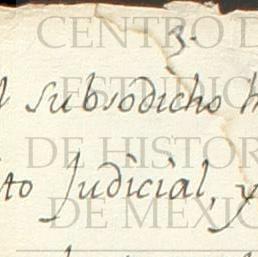 3.
subsodicho
to Judicial, y
CENTRO D
ESTUDIO
DE HISTOR
DE MEXIC